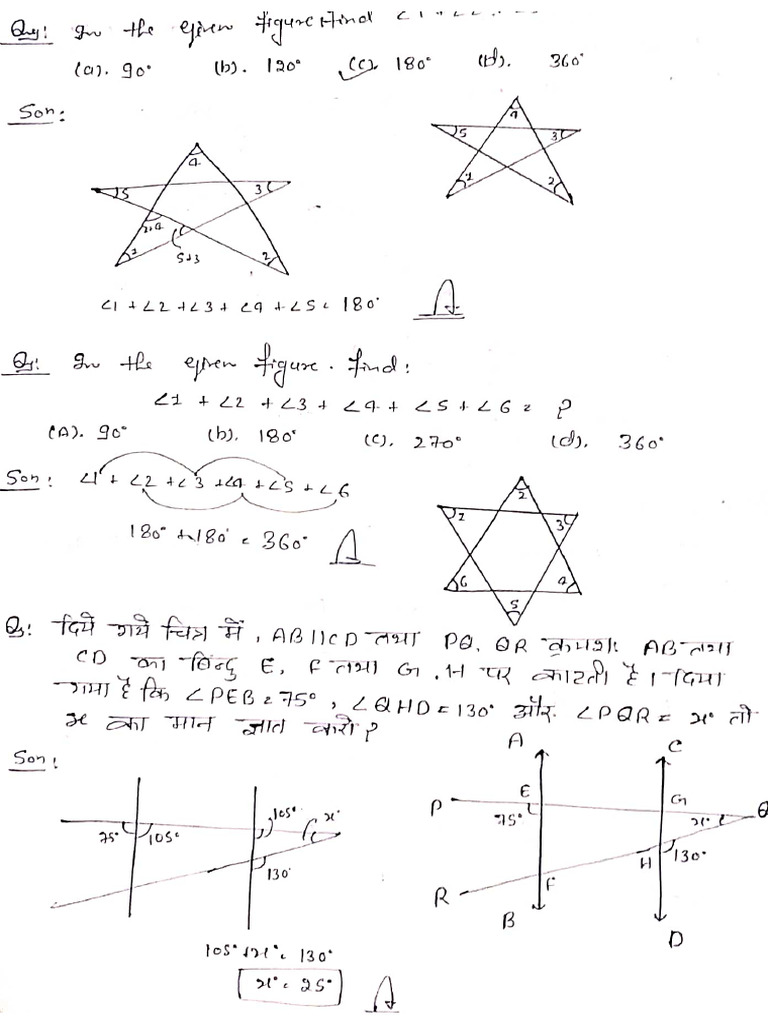 Qus: In the given figure Find ∠1 + ∠2
(a). 90° (b). 120° (c). 180° (d). 360°
Son:
4
5
3
2,4
1
5+3
2
4
5
3
1
2
∠1 + ∠2 + ∠3 + ∠4 + ∠5 = 180° A
Q: In the given figure. Find:
∠1 + ∠2 + ∠3 + ∠4 + ∠5 + ∠6 = ?
(A). 90° (b). 180° (c). 270° (d). 360°
Son: ∠1 + ∠2 + ∠3 + ∠4 + ∠5 + ∠6
180° + 180° = 360° A
2
2
3
6
4
5
Q: दिये गये चित्र में, AB||CD तथा PQ, QR क्रमशः AB तथा
CD का बिन्दु E, F तथा G, H पर काटती है। दिया
गया है कि ∠PEB = 75°, ∠QHD = 130° और ∠PQR = x° तो
x का मान ज्ञात करो?
Son:
75° 105° 105° x°
130°
105° + x° = 130°
x° = 25° A
A C
P E G Q
75° x°
H 130°
R F
B D